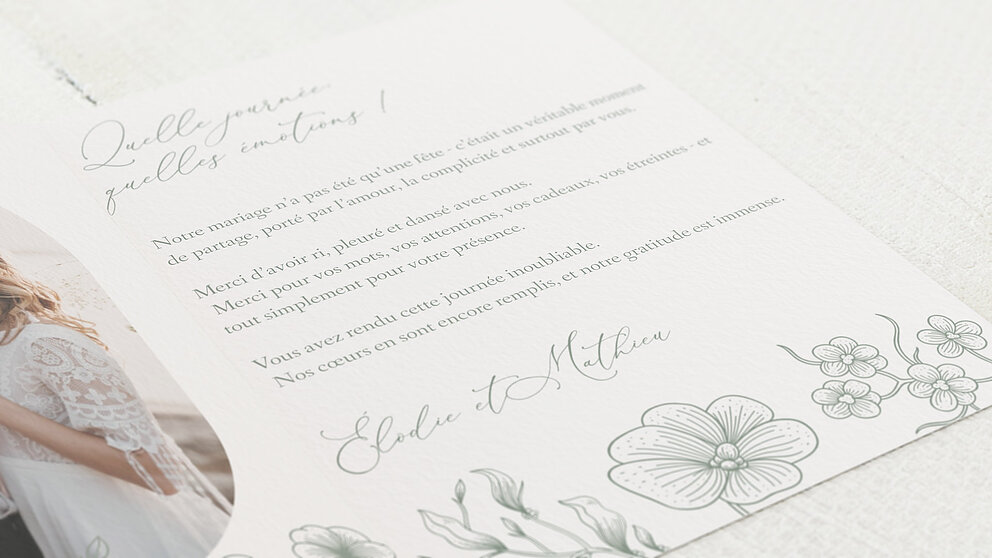 Quelle journée,
quelles émotions !
Notre mariage n'a pas été qu'une fête - c'était un véritable moment
de partage, porté par l'amour, la complicité et surtout par vous.
Merci d'avoir ri, pleuré et dansé avec nous.
Merci pour vos mots, vos attentions, vos cadeaux, vos étreintes - et
tout simplement pour votre présence.
Vous avez rendu cette journée inoubliable.
Nos cœurs en sont encore remplis, et notre gratitude est immense.
Élodie et Mathieu